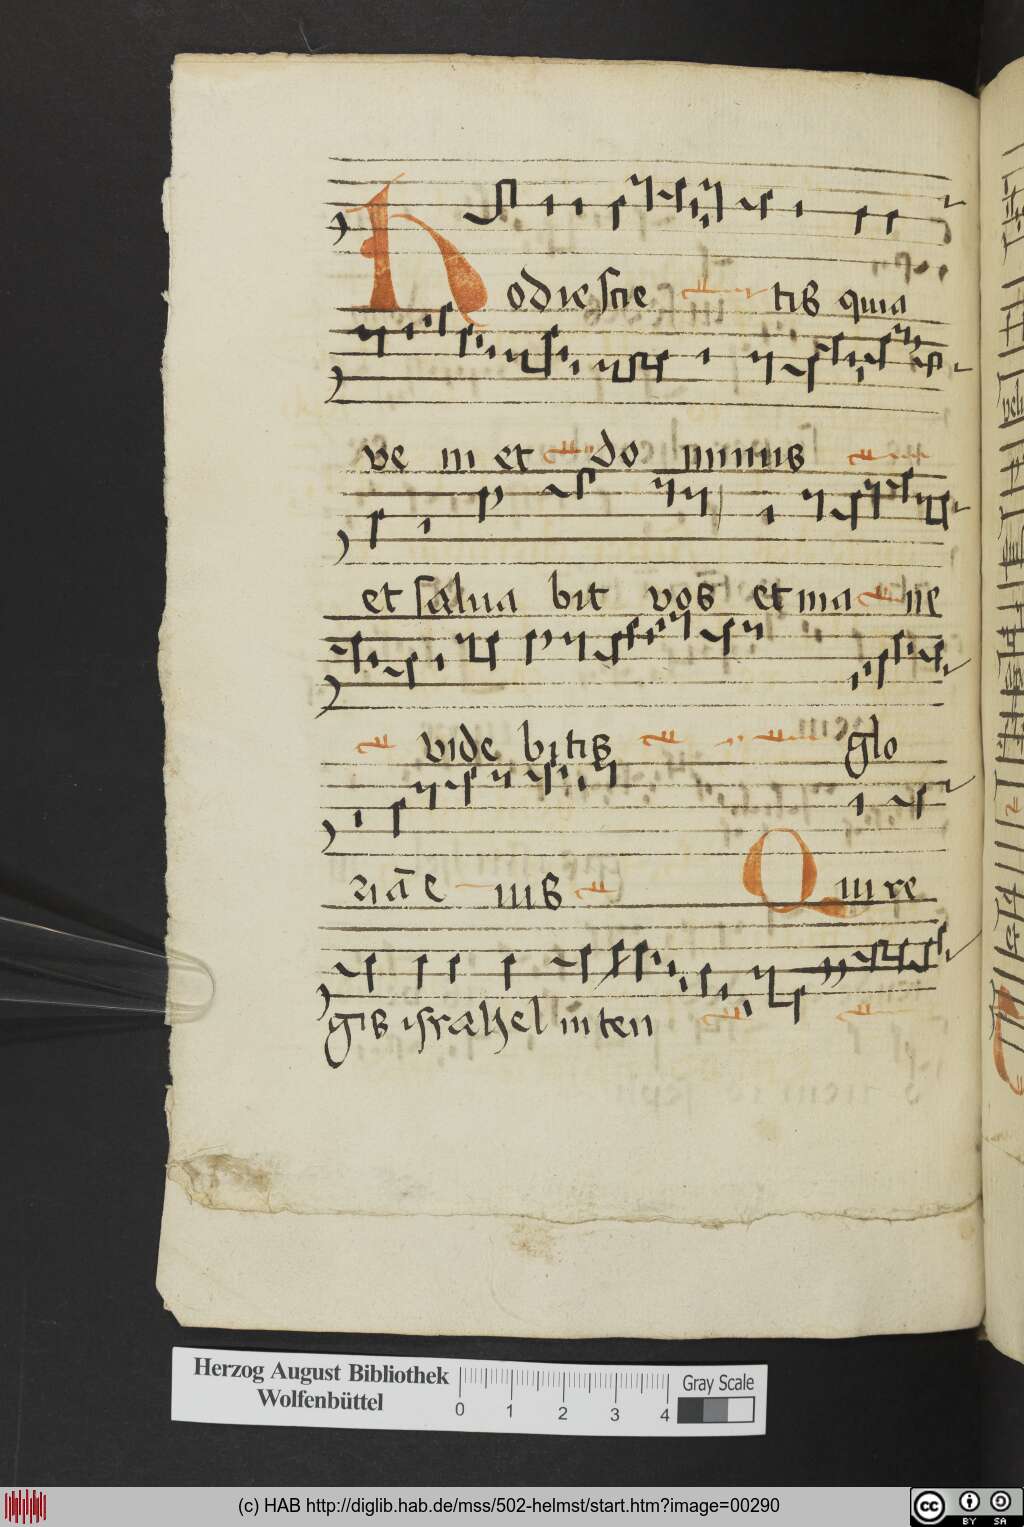 Hodie scie tis quia
ve ni et do minus
et salua bit vos et ma ne
vide bitis glo
riā e ius Qui re
gis israhel inten
Herzog August Bibliothek
Wolfenbüttel
0 1 2 3 4
Gray Scale
(c) HAB http://diglib.hab.de/mss/502-helmst/start.htm?image=00290
cc BY SA